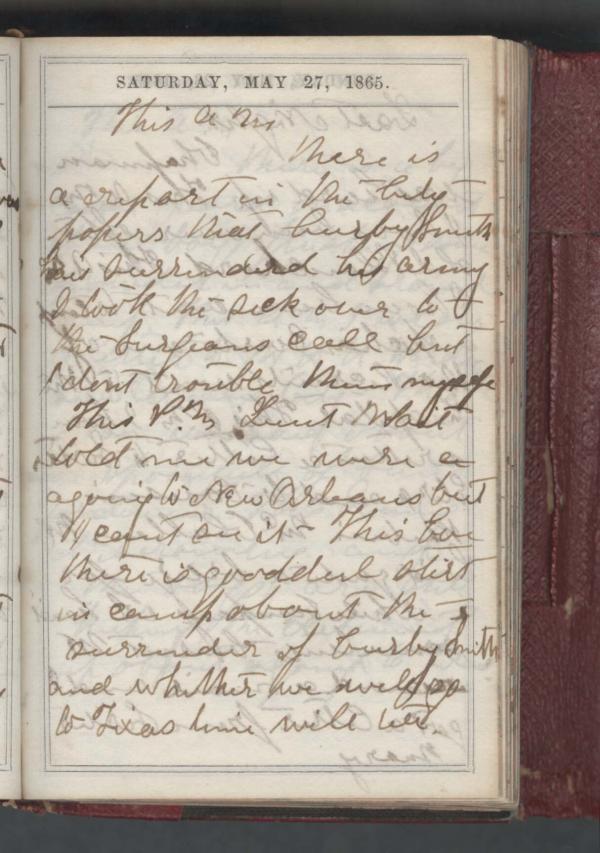 SATURDAY, MAY 27, 1865.
This A M
there is
a report in the City
papers that Curby Smith
has surrenderd his army
I took the sick over to
the Surgeons call but
I dont trouble them myself
This P.M Lieut Wait
told me we were a
agoing to New Orleans but
I cant see it This Eve
there is good deel stirt
in camp about the
surrender of Curby Smith
and whither we will go
to Texas time will tell.